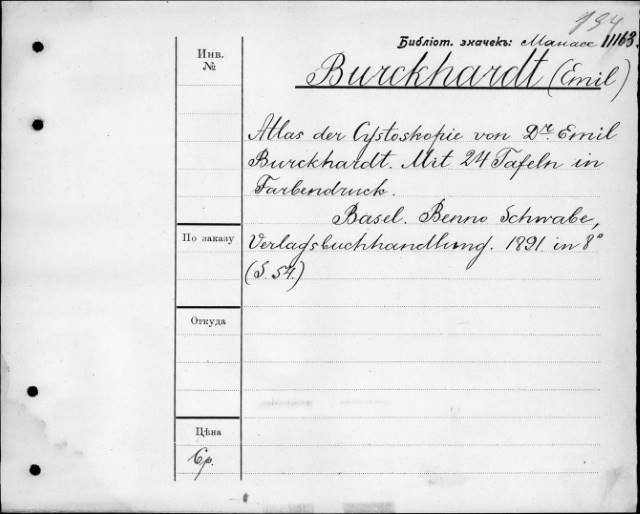 794
Библіот. значекъ: Манасс 11163
Инв.
№
Burckhardt (Emil)
Atlas der Cystoskopie von Dr. Emil
Burckhardt. Mit 24 Tafeln in
Farbendruck.
Basel. Benno Schwabe,
По заказу
Verlagsbuchhandlung. 1891. in 8°
(S. 54.)
Откуда
Цѣна